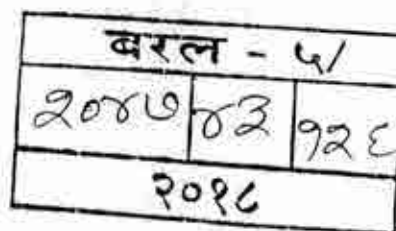 बरल - ५/
२०४७ ४३ १२६
२०१८